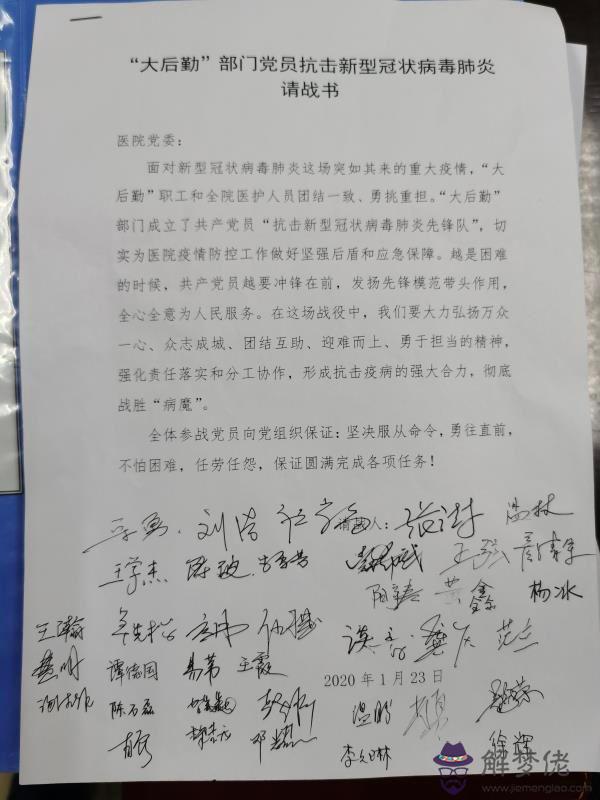 “大后勤”部门党员抗击新型冠状病毒肺炎
请战书
医院党委：
面对新型冠状病毒肺炎这场突如其来的重大疫情，“大
后勤”职工和全院医护人员团结一致、勇挑重担。“大后勤”
部门成立了共产党员“抗击新型冠状病毒肺炎先锋队”，切
实为医院疫情防控工作做好坚强后盾和应急保障。越是困难
的时候，共产党员越要冲锋在前，发扬先锋模范带头作用，
全心全意为人民服务。在这场战役中，我们要大力弘扬万众
一心、众志成城、团结互助、迎难而上、勇于担当的精神，
强化责任落实和分工协作，形成抗击疫病的强大合力，彻底
战胜“病魔”。
全体参战党员向党组织保证：坚决服从命令，勇往直前，
不怕困难，任劳任怨，保证圆满完成各项任务！
刘浩 人：张涛 温林
王学杰 陈波 王强
黄鑫 杨冰
王瀚 范立
谭德国 易苇 王霞
2020 年 1 月 23 日
陈石磊 温鹏
邓耀 徐辉
解梦佬
www.jiemenglao.com